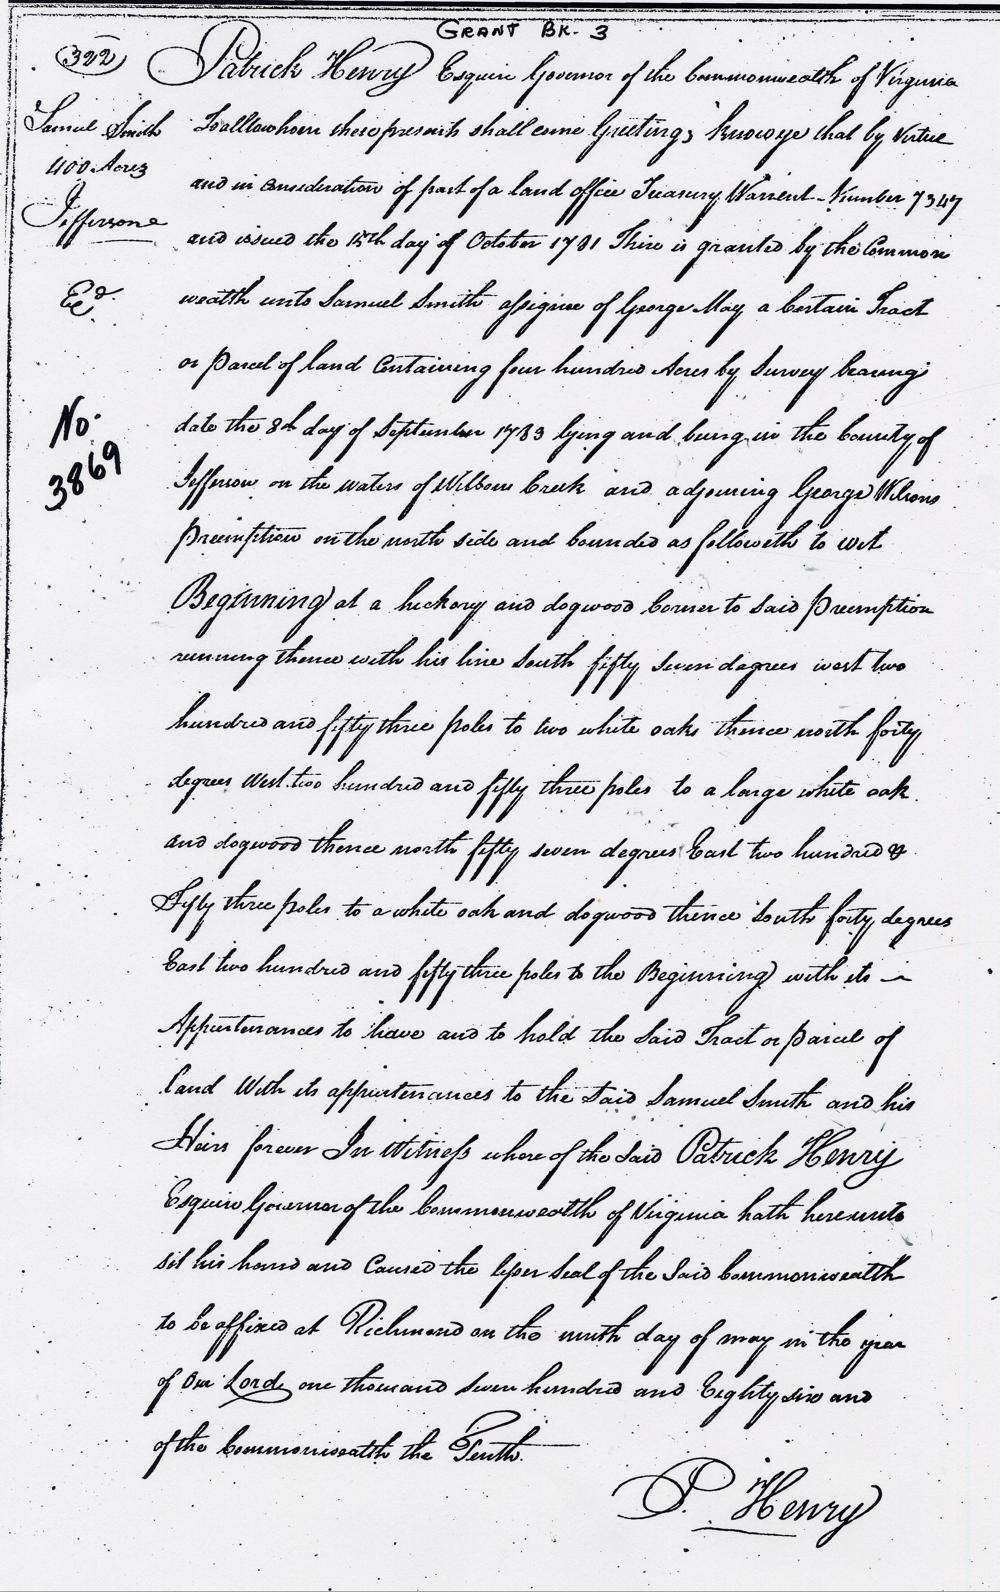 GRANT BK. 3
322
Patrick Henry Esquire Governor of the Commonwealth of Virginia
Samuel Smith
To all whom these presents shall come Greeting; Know ye that by Virtue
400 Acres
and in Consideration of part of a land office Treasury Warrent Number 7347
Jefferson
and issued the 15th day of October 1781 There is granted by the Common
Ecd.
wealth unto Samuel Smith assignee of George May a Certain Tract
or Parcel of land Containing four hundred Acres by Survey bearing
No.
3869
date the 8th day of September 1783 lying and being in the County of
Jefferson on the waters of Wilsons Creek and adjoining George Wilsons
Preemption on the north side and bounded as followeth to wit
Beginning at a hickory and dogwood Corner to said Preemption
running thence with his line South fifty seven degrees west two
hundred and fifty three poles to two white oaks thence north forty
degrees West two hundred and fifty three poles to a large white oak
and dogwood thence north fifty seven degrees East two hundred &
Fifty three poles to a white oak and dogwood thence South forty degrees
East two hundred and fifty three poles to the Beginning with its
Appurtenances to have and to hold the Said Tract or Parcel of
Land With its appurtenances to the Said Samuel Smith and his
Heirs forever In Witness where of the Said Patrick Henry
Esquire Governor of the Commonwealth of Virginia hath hereunto
set his hand and Caused the lesser Seal of the Said Commonwealth
to be affixed at Richmond on the ninth day of may in the year
of Our Lord one thousand seven hundred and Eighty six and
of the Commonwealth the Tenth.
P. Henry